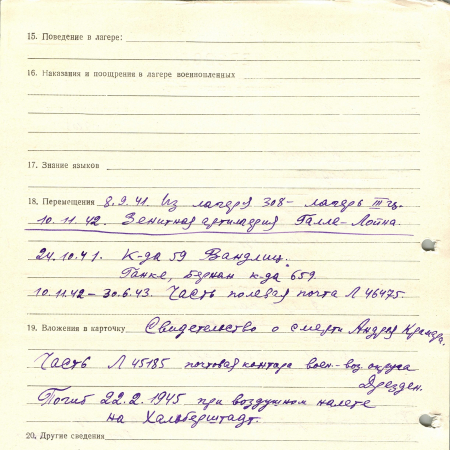 15. Поведение в лагере:
16. Наказания и поощрения в лагере военнопленных
17. Знание языков
18. Перемещения 8.9.41. Из лагеря 308 - лагерь III
10.11.42 - Зенитная артиллерия Галле-Лойна.
24.10.41. К-да 59 Вандлиц.
Ланке, Бернау к-да 659.
10.11.42 - 30.6.43. Часть полевая почта Л 46475.
19. Вложения в карточку Свидетельство о смерти Андрея
Часть Л 45185 почтовая контора воен.-воз. округа
Дрезден.
Погиб 22.2.1945 при воздушном налете
на Хальберштадт.
20. Другие сведения